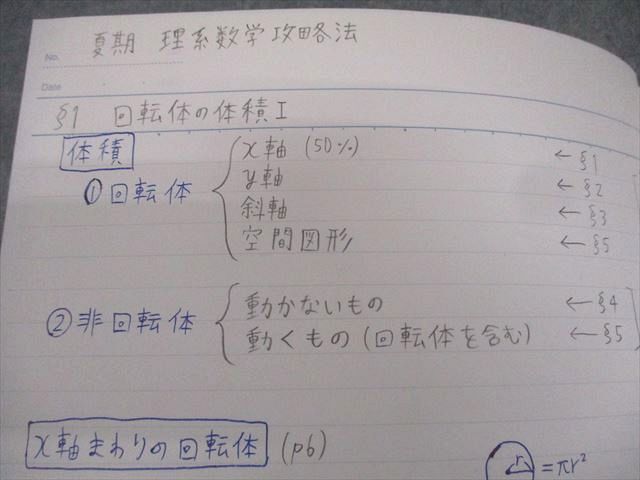 夏期 理系数学攻略法
No.
Date
§1 回転体の体積Ⅰ
体積
①回転体
x軸 (50%) ←§1
y軸 ←§2
斜軸 ←§3
空間図形 ←§5
②非回転体
動かないもの ←§4
動くもの(回転体を含む) ←§5
x軸まわりの回転体 (p6)
r =πr²